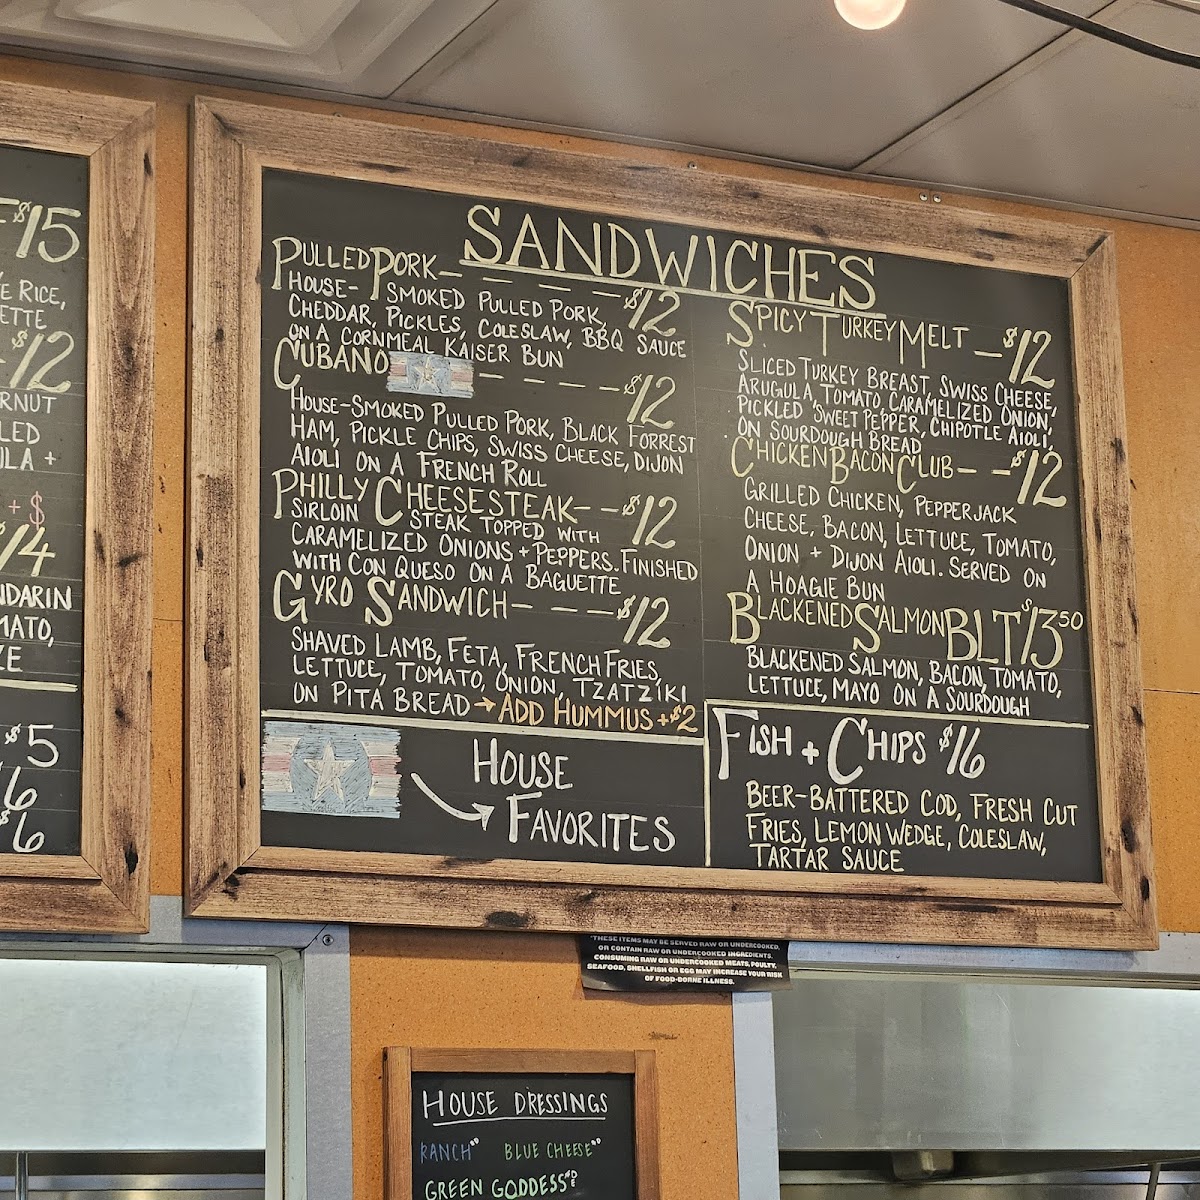 $15
E RICE,
ETTE
$12
RNUT
LED
ULA +
+ $
$14
NDARIN
MATO,
ZE
$5
$6
$6
SANDWICHES
PULLED PORK — — — — $12
HOUSE-SMOKED PULLED PORK,
CHEDDAR, PICKLES, COLESLAW, BBQ SAUCE
ON A CORNMEAL KAISER BUN
CUBANO — — — — $12
HOUSE-SMOKED PULLED PORK, BLACK FORREST
HAM, PICKLE CHIPS, SWISS CHEESE, DIJON
AIOLI ON A FRENCH ROLL
PHILLY CHEESESTEAK – – $12
SIRLOIN STEAK TOPPED WITH
CARAMELIZED ONIONS + PEPPERS. FINISHED
WITH CON QUESO ON A BAGUETTE
GYRO SANDWICH — — — — $12
SHAVED LAMB, FETA, FRENCH FRIES,
LETTUCE, TOMATO, ONION, TZATZIKI
ON PITA BREAD → ADD HUMMUS +$2
HOUSE
FAVORITES
SPICY TURKEY MELT — $12
SLICED TURKEY BREAST, SWISS CHEESE,
ARUGULA, TOMATO, CARAMELIZED ONION,
PICKLED SWEET PEPPER, CHIPOTLE AIOLI,
ON SOURDOUGH BREAD
CHICKEN BACON CLUB – – $12
GRILLED CHICKEN, PEPPERJACK
CHEESE, BACON, LETTUCE, TOMATO,
ONION + DIJON AIOLI. SERVED ON
A HOAGIE BUN
BLACKENED SALMON BLT $13.50
BLACKENED SALMON, BACON, TOMATO,
LETTUCE, MAYO ON A SOURDOUGH
FISH + CHIPS $16
BEER-BATTERED COD, FRESH CUT
FRIES, LEMON WEDGE, COLESLAW,
TARTAR SAUCE
*THESE ITEMS MAY BE SERVED RAW OR UNDERCOOKED,
OR CONTAIN RAW OR UNDERCOOKED INGREDIENTS.
CONSUMING RAW OR UNDERCOOKED MEATS, POULTY,
SEAFOOD, SHELLFISH OR EGG MAY INCREASE YOUR RISK
OF FOOD-BORNE ILLNESS.
HOUSE DRESSINGS
RANCH BLUE CHEESE
GREEN GODDESS